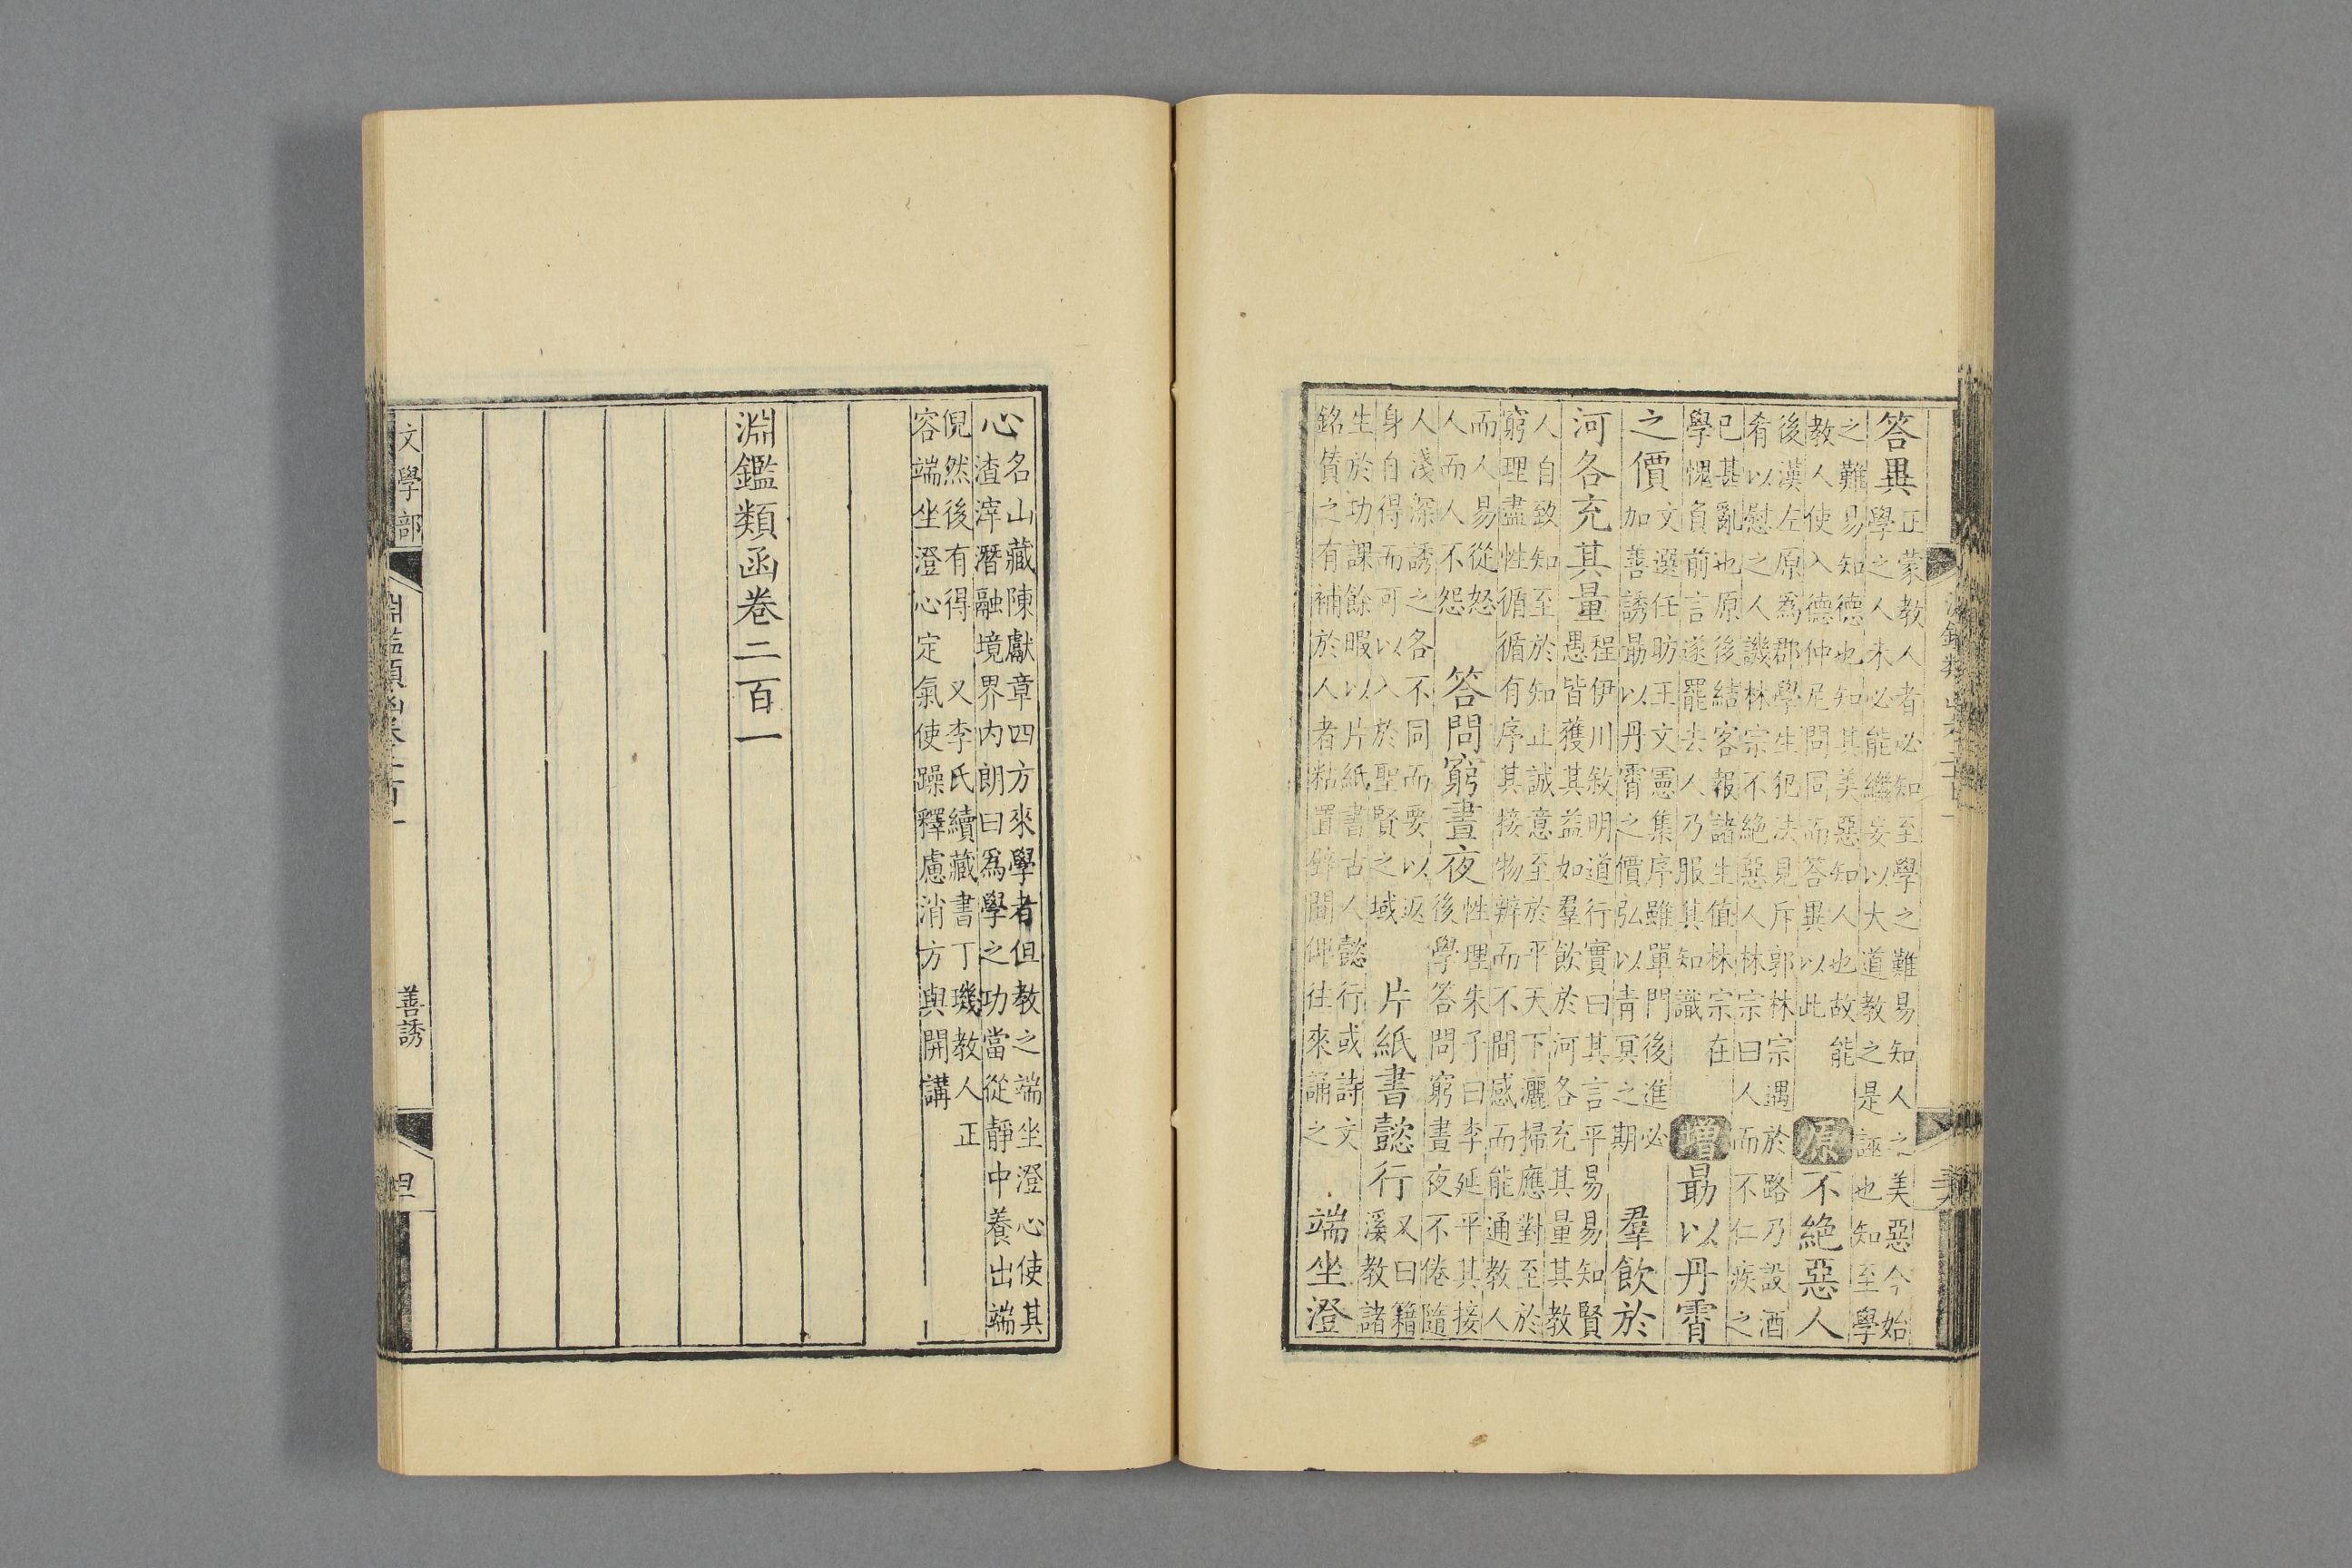 答異 正蒙教人者必知至學之難易知人之美惡今始
學之人未必能繼妄以大道教之是誣也知至學
之難易知德也知其美惡知人也故能
教人使入德仲尼問同而答異以此
原 不絕惡人
後漢左原爲郡學生犯法見斥郭林宗遇於路乃設酒
肴以慰之人譏林宗不絕惡人林宗曰人而不仁疾之
已甚亂也原後結客報諸生值林宗在
學愧負前言遂罷去人乃服其知識
增 勗以丹霄
之價 文選任昉王文憲集序雖單門後進必
加善誘勗以丹霄之價弘以青冥之期
羣飲於
河各充其量 程伊川敘明道行實曰其言平易易知賢
愚皆獲其益如羣飲於河各充其量其教
人自致知至於知止誠意至於平天下灑掃應對至於
窮理盡性循循有序其接物辨而不間感而能通教人
而人易從怒
人而人不怨
答問窮晝夜 性理朱子曰李延平其接
後學答問窮晝夜不倦隨
人淺深誘之各不同而要以返
身自得而可以入於聖賢之域
片紙書懿行 又曰籍
溪教諸
生於功課餘暇以片紙書古人懿行或詩文
銘賛之有補於人者粘置壁間俾往來誦之
端坐澄
心 名山藏陳獻章四方來學者但教之端坐澄心使其
渣滓潛融境界内朗曰爲學之功當從靜中養出端
倪然後有得 又李氏續藏書丁璣教人正
容端坐澄心定氣使躁釋慮消方與開講
淵鑑類函卷二百一
文學部
淵鑑類函卷二百一
善誘